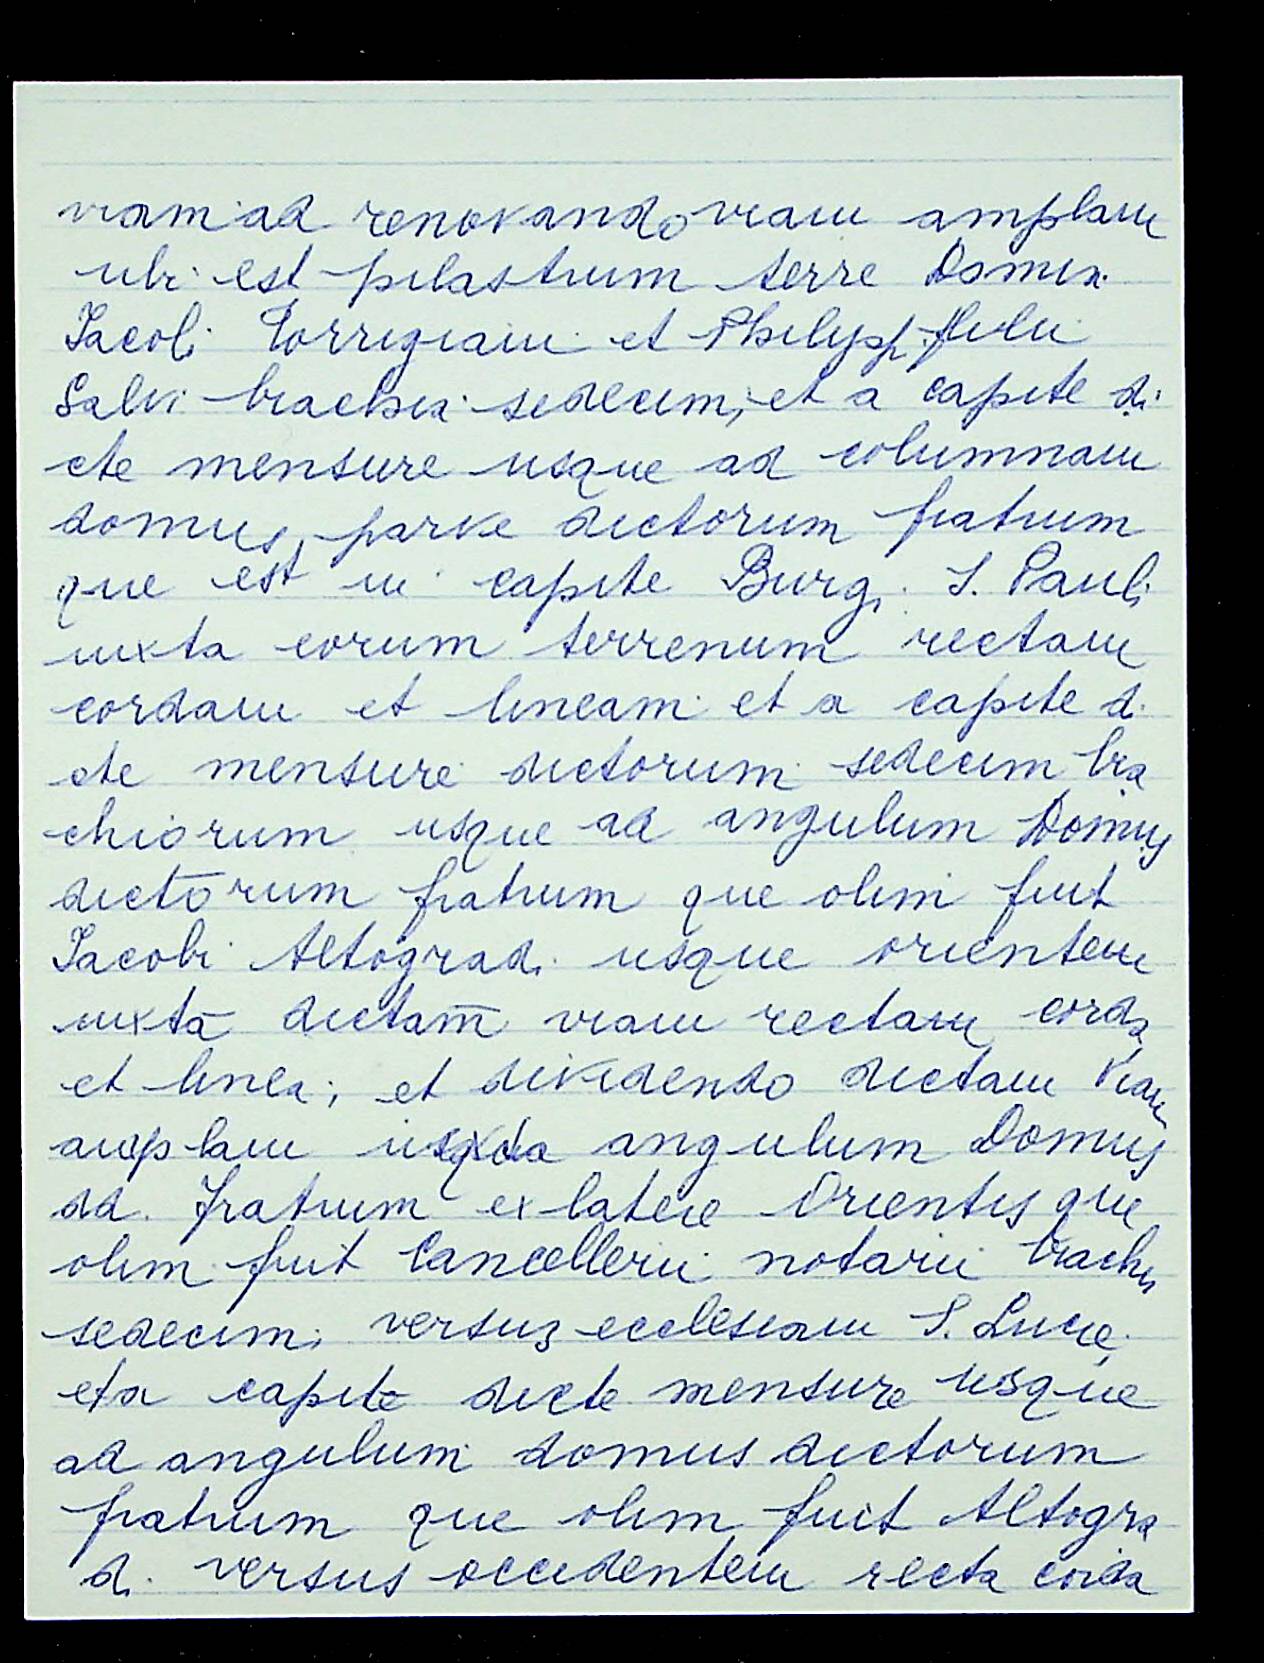 viam ad renovando viam amplam
ubi est pilastrum terre Domin.
Jacobi Torrigiani et Philypp. filii
Salvi brachia sedecim; et a capite di
cte mensure usque ad columnam
domus parve dictorum fratrum
que est in capite Burgi S. Pauli
iuxta eorum terrenum rectam
cordam et lineam et a capite di
cte mensure dictorum sedecim bra
chiorum usque ad angulum Domus
dictorum fratrum que olim fuit
Jacobi Altogradi usque orientem
iuxta dictam viam rectam corda
et linea; et dividendo dictam viam
amplam angulum Domus
dd. fratrum ex latere Orientis que
olim fuit Cancellerii notarii brachiis
sedecim versus ecclesiam S. Lucie
et a capite dicte mensure usque
ad angulum domus dictorum
fratrum que olim fuit Altogra
di versus occidentem recta corda